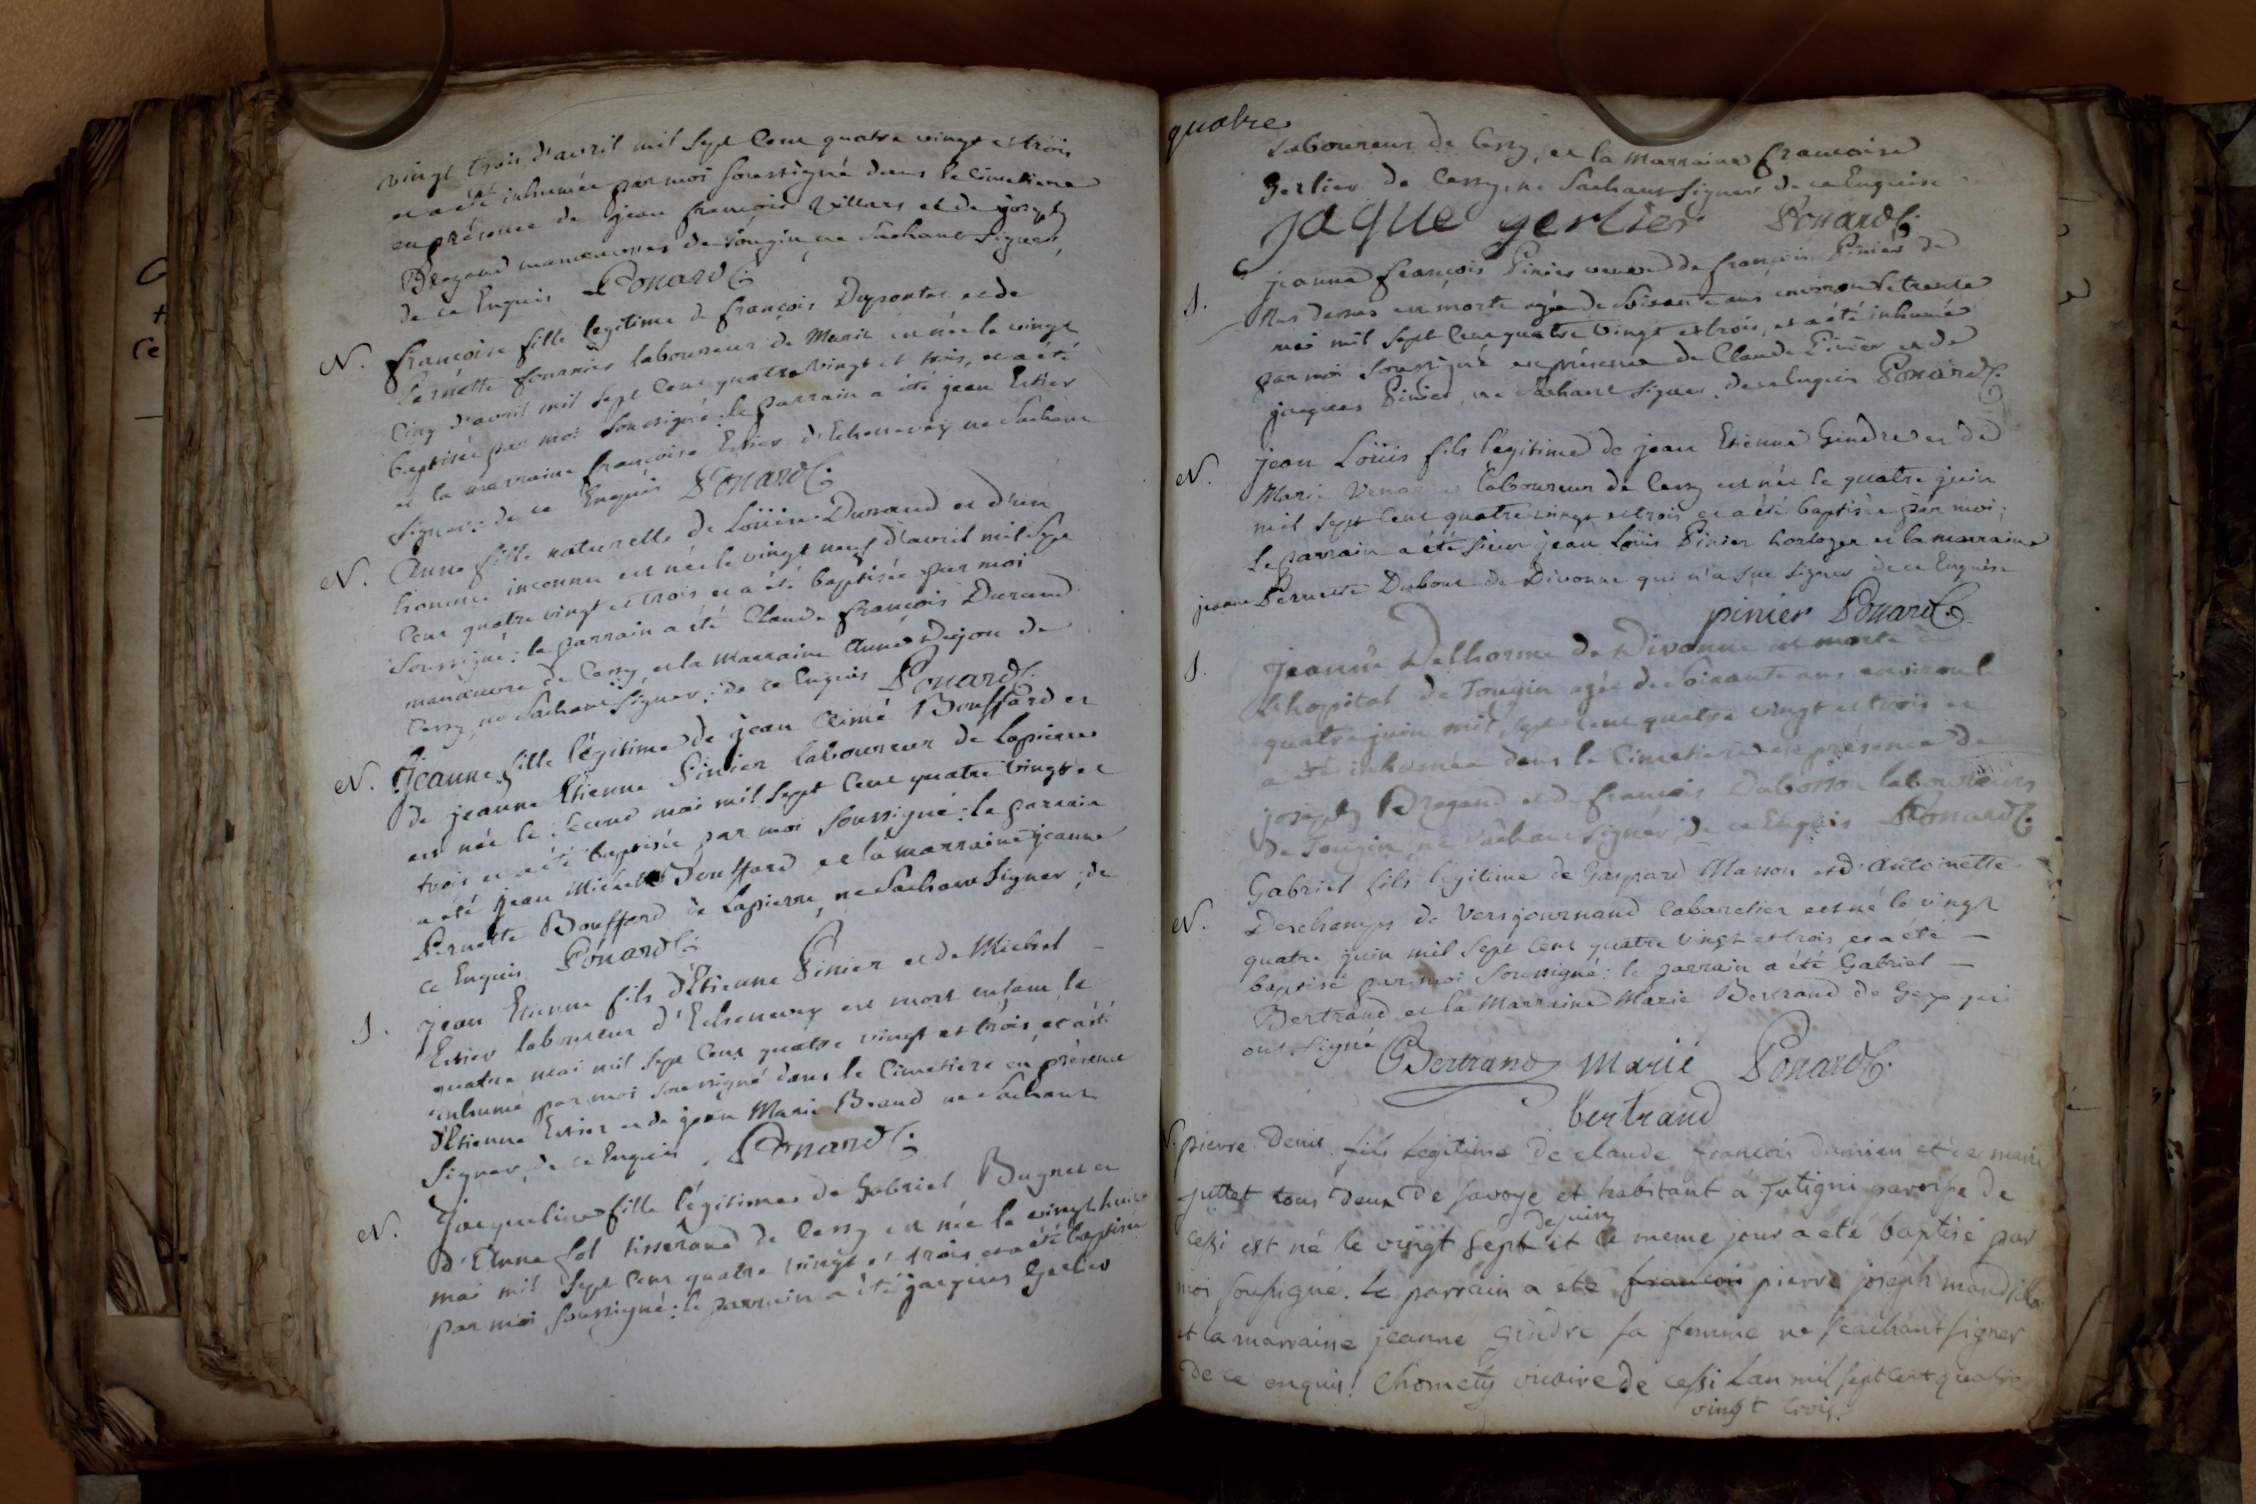 vingt trois d'avril mil sept cent quatre vingt et trois
et a été inhumée par moi soussigné dans le cimetiere
en présence de jean françois Villars et de joseph
Brogand manœuvres de Tougin ne sachant signer,
de ce Enquis Ponard C.
N. françoise fille legitime de françois Dupontet et de
Pernette fournier laboureur de Marie est née le vingt
Cinq d'avril mil sept cent quatre vingt et trois, et a été
baptisée par moi soussigné : le parrain a été jean Estier
et la marraine françoise Estier d'Echenevex ne sachant
signer : de ce Enquis Ponard C.
N. Anne fille naturelle de Loüise Durand et d'un
homme inconnu est née le vingt neuf d'avril mil sept
Cent quatre vingt et trois et a été baptisée par moi
Soussigné : le parrain a été Claude françois Durand
manœuvre de Cessy, et la Marraine Anne Dujon de
Cessy ne sachant signer : de ce Enquis Ponard C.
N. Jeanne fille légitime de jean Aimé Bouffard et
de jeanne Etienne Pinier laboureur de Lapierre
est née le second mai mil sept cent quatre vingt et
trois et a été baptisée par moi soussigné : le parrain
a été jean Michel Bouffard et la marraine jeanne
Pernette Bouffard de Lapierre, ne sachant signer, de
ce Enquis Ponard C.
S. jean Etienne fils d'Etienne Pinier et de Michel
Estier laboureur d'Echenevex est mort enfant le
quatre mai mil sept cent quatre vingt et trois, et a été
inhumé par moi soussigné dans le Cimetiere en présence
d'Etienne Estier et de jean Marie Braud ne sachant
signer, de ce Enquis. Ponard C.
N. Jacqueline fille légitime de Gabriel Bugnet et
d'Anne fol tisserand de Cessy est née le vingt huit
mai mil sept cent quatre vingt et trois et a été baptisée
par moi soussigné : le parrain a été jacques Gerlier
quatre
laboureur de Cessy, et la Marraine françoise
Gerlier de Cessy, ne sachant signer de ce Enquise
jaque gerlier Ponard C.
S. jeanne françois Pinier veuve de françois Pinier de
Mas dessus est morte agée de soixante ans environ le trente
mai mil sept cent quatre vingt et trois, et a été inhumée
par moi soussigné en présence de Claude Pinier et de
jacques Pinier, ne sachant signer, de ce Enquis Ponard C.
N. jean Loüis fils légitime de jean Etienne Gindre et de
Marie laboureur de Cessy est née le quatre juin
mil sept cent quatre vingt et trois et a été baptisée par moi ;
Le parrain a été sieur jean Loüis Pinier horloger et la marraine
jeanne Pernette Dubout de Divonne qui n'a sue signer de ce Enquise
pinier Ponard C.
S. Jeanne Delhorme de Divonne est morte à
L'hopital de Tougin agée de soixante ans environ le
quatre juin mil sept cent quatre vingt et trois et
a été inhumée dans le Cimetiere en présence de
joseph Brogand et de françois Dubosson laboureurs
de Tougin ne sachant signer, de ce Enquis Ponard C.
Gabriel fils légitime de Gaspard Masson et d'Antoinette
N. Deschamps de Versjournand Cabaretier est né le vingt
quatre juin mil sept cent quatre vingt et trois, et a été
baptisé par moi soussigné : le parrain a été Gabriel
Bertrand et la Marraine Marie Bertrand de Gex qui
ont signé Bertrand Marie Ponard C.
bertrand
N. pierre Denis fils legitime de claude françois damien et de marie
juttet tous deux de savoye et habitant a jutigni paroisse de
cessi est né le vingt sept de juin et le meme jour a eté baptisé par
moi soussigné. Le parrain a eté françois pierre joseph
et la marraine jeanne gindre sa femme ne scachant signer
de ce enquis ! Chomety vicaire de cessi Lan mil sept cent quatre
vingt trois.